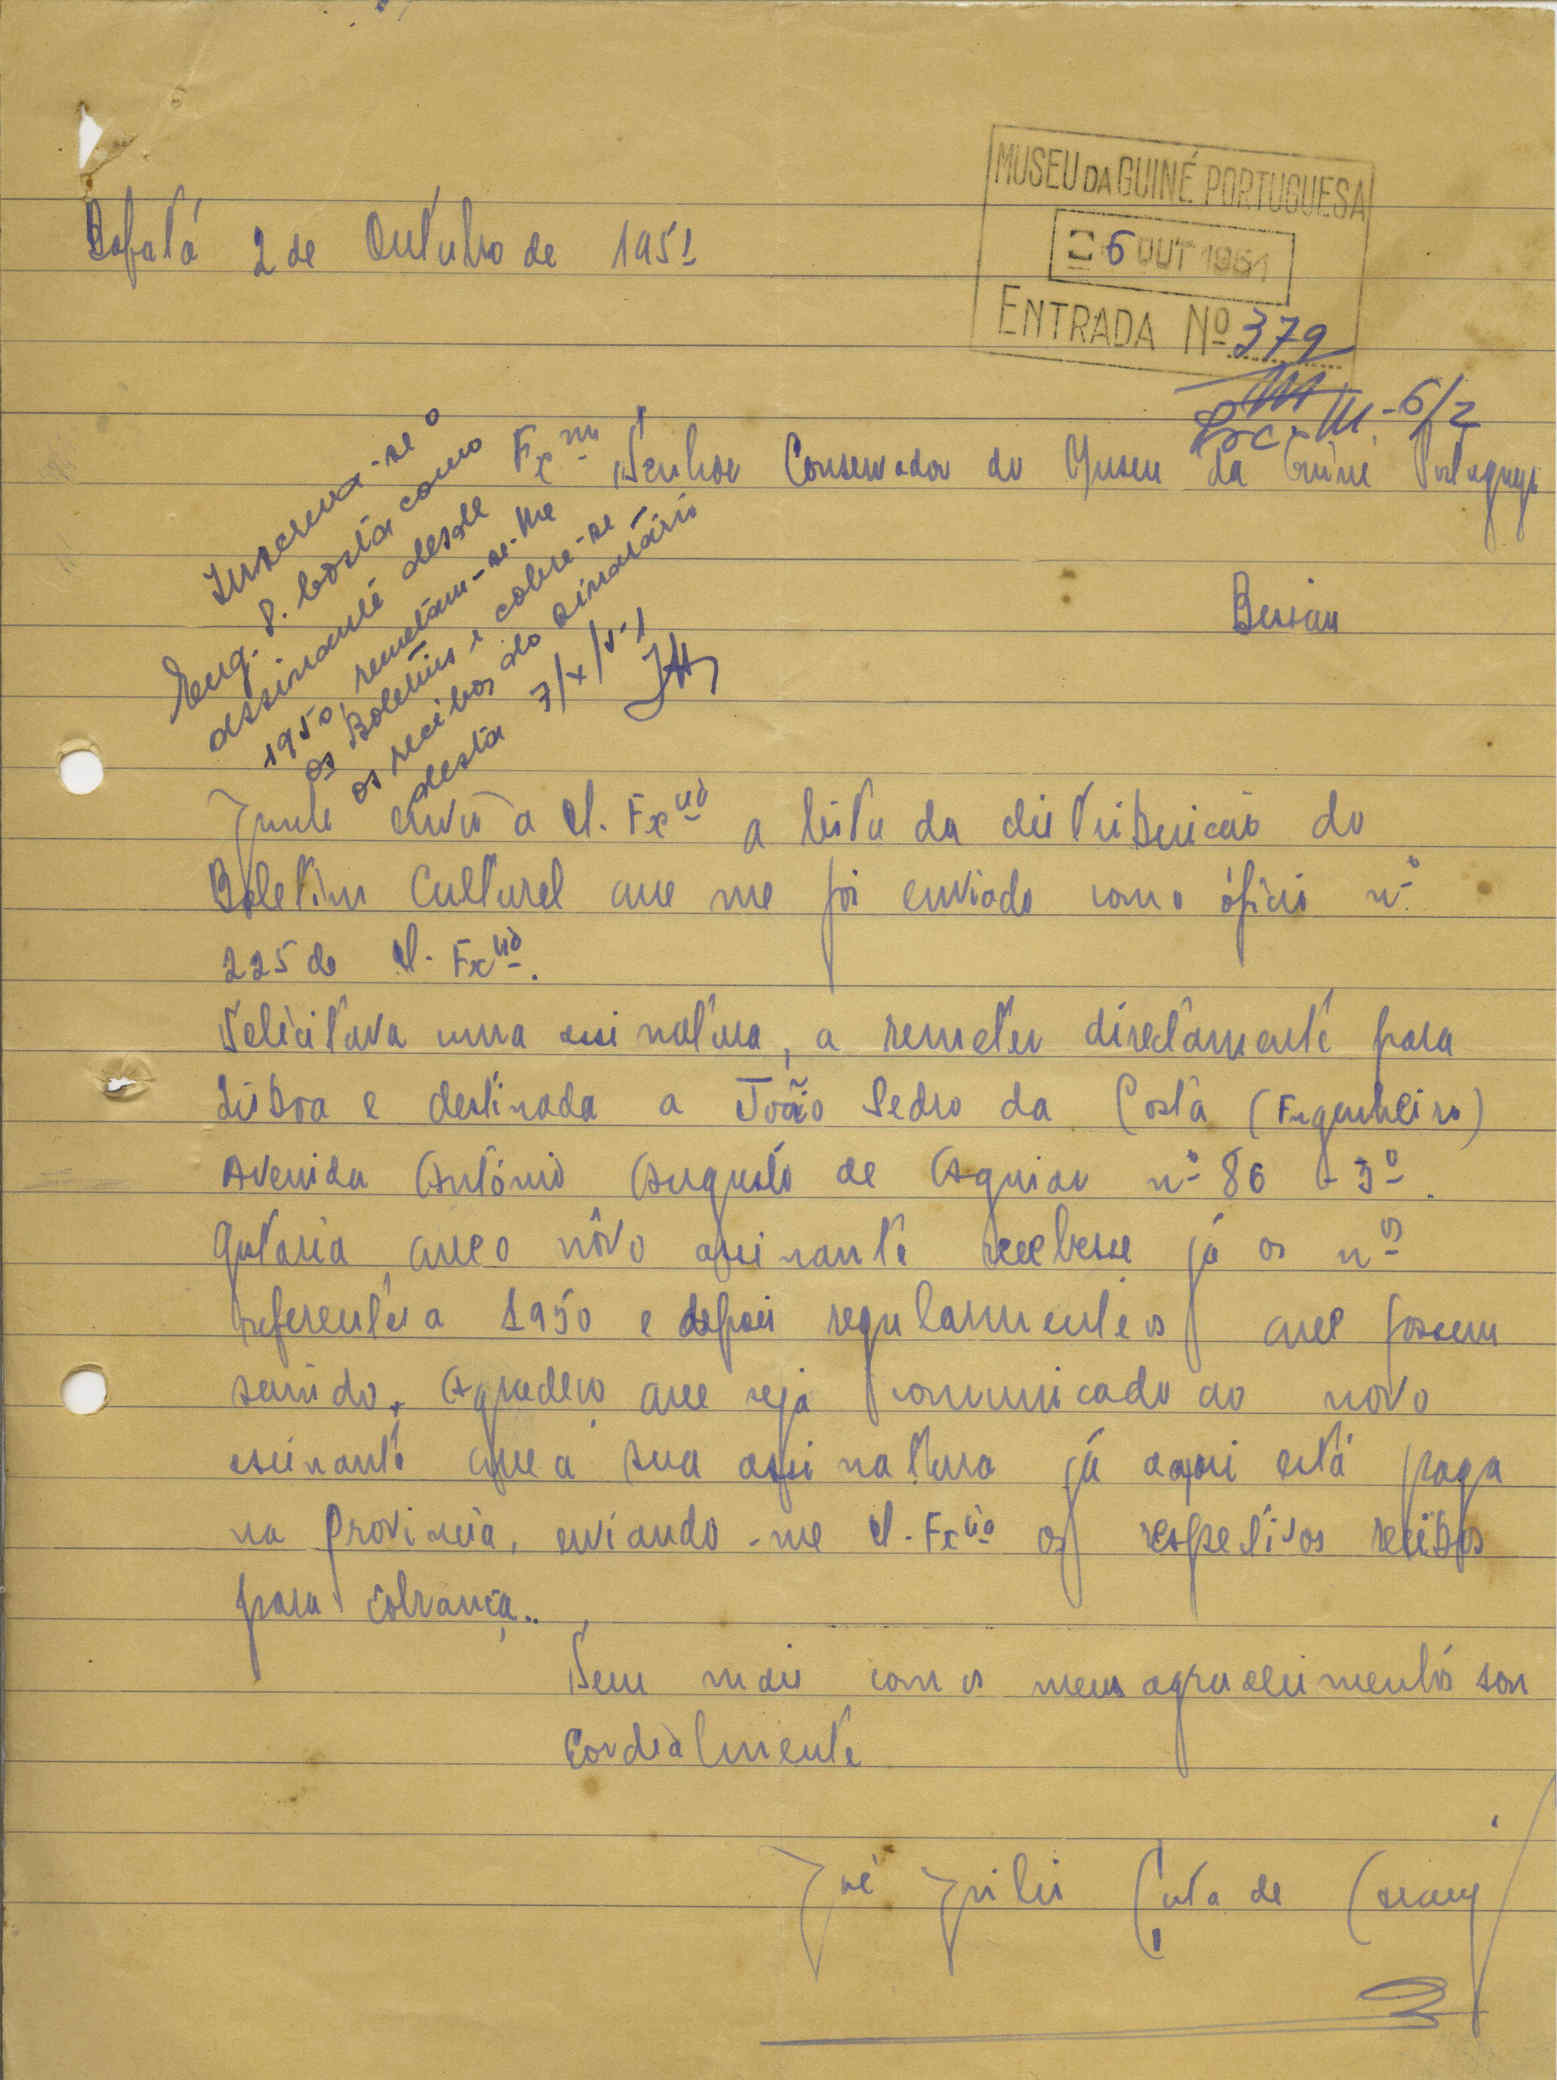 Bafatá 2 de Outubro de 1951
MUSEU DA GUINÉ PORTUGUESA
6 OUT 1951
ENTRADA Nº 379
Proc. M-6/2
Exmº Senhor Conservador do Museu da Guiné Portuguesa
Bissau
Inscreva-se o
Eng. P. Costa como
assinante desde
1950, remetam-se-lhe
os Boletins e cobre-se
os recibos do sinatário
desta 7/X/51
Junto envio a V. Exciª a lista da distribuição do
Boletim Cultural que me foi enviado com o ófício nº
225 de V. Exciª.
Solicitava uma assinatura, a remeter directamente para
Lisboa e destinada a João Pedro da Costa (Engenheiro)
Avenida António Augusto de Aguiar nº 86 - 3º.
Gostaria que o nôvo assinante recebesse já os nºs
referentes a 1950 e depois regularmente os que fossem
saindo. Agradeço que seja comunicado ao novo
assinante que a sua assinatura já aqui está paga
na Provincia, enviando-me V. Exciª os respetivos recibos
para cobrança..
Sem mais com os meus agradecimentos sou
Cordialmente
José Júlio de